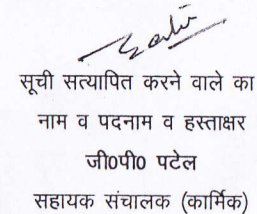 सूची सत्यापित करने वाले का
नाम व पदनाम व हस्ताक्षर
जी0पी0 पटेल
सहायक संचालक (कार्मिक)